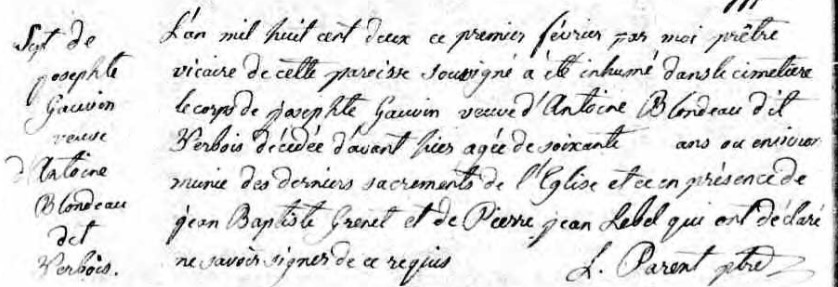 Sept de
josephte
Gauvin
veuve
d'Antoine
Blondeau
dit
Verbois.
L'an mil huit cent deux ce premier février par moi prêtre
vicaire de cette paroisse soussigné a été inhumé dans le cimetière
le corps de josephte Gauvin veuve d'Antoine Blondeau dit
Verbois décédée d'avant hier agée de soixante ans ou environ
munie des derniers sacrements de l'Eglise et ce en présence de
jean Baptiste Grenet et de Pierre jean Lebel qui ont déclaré
ne savoir signer de ce requis L. Parent ptre